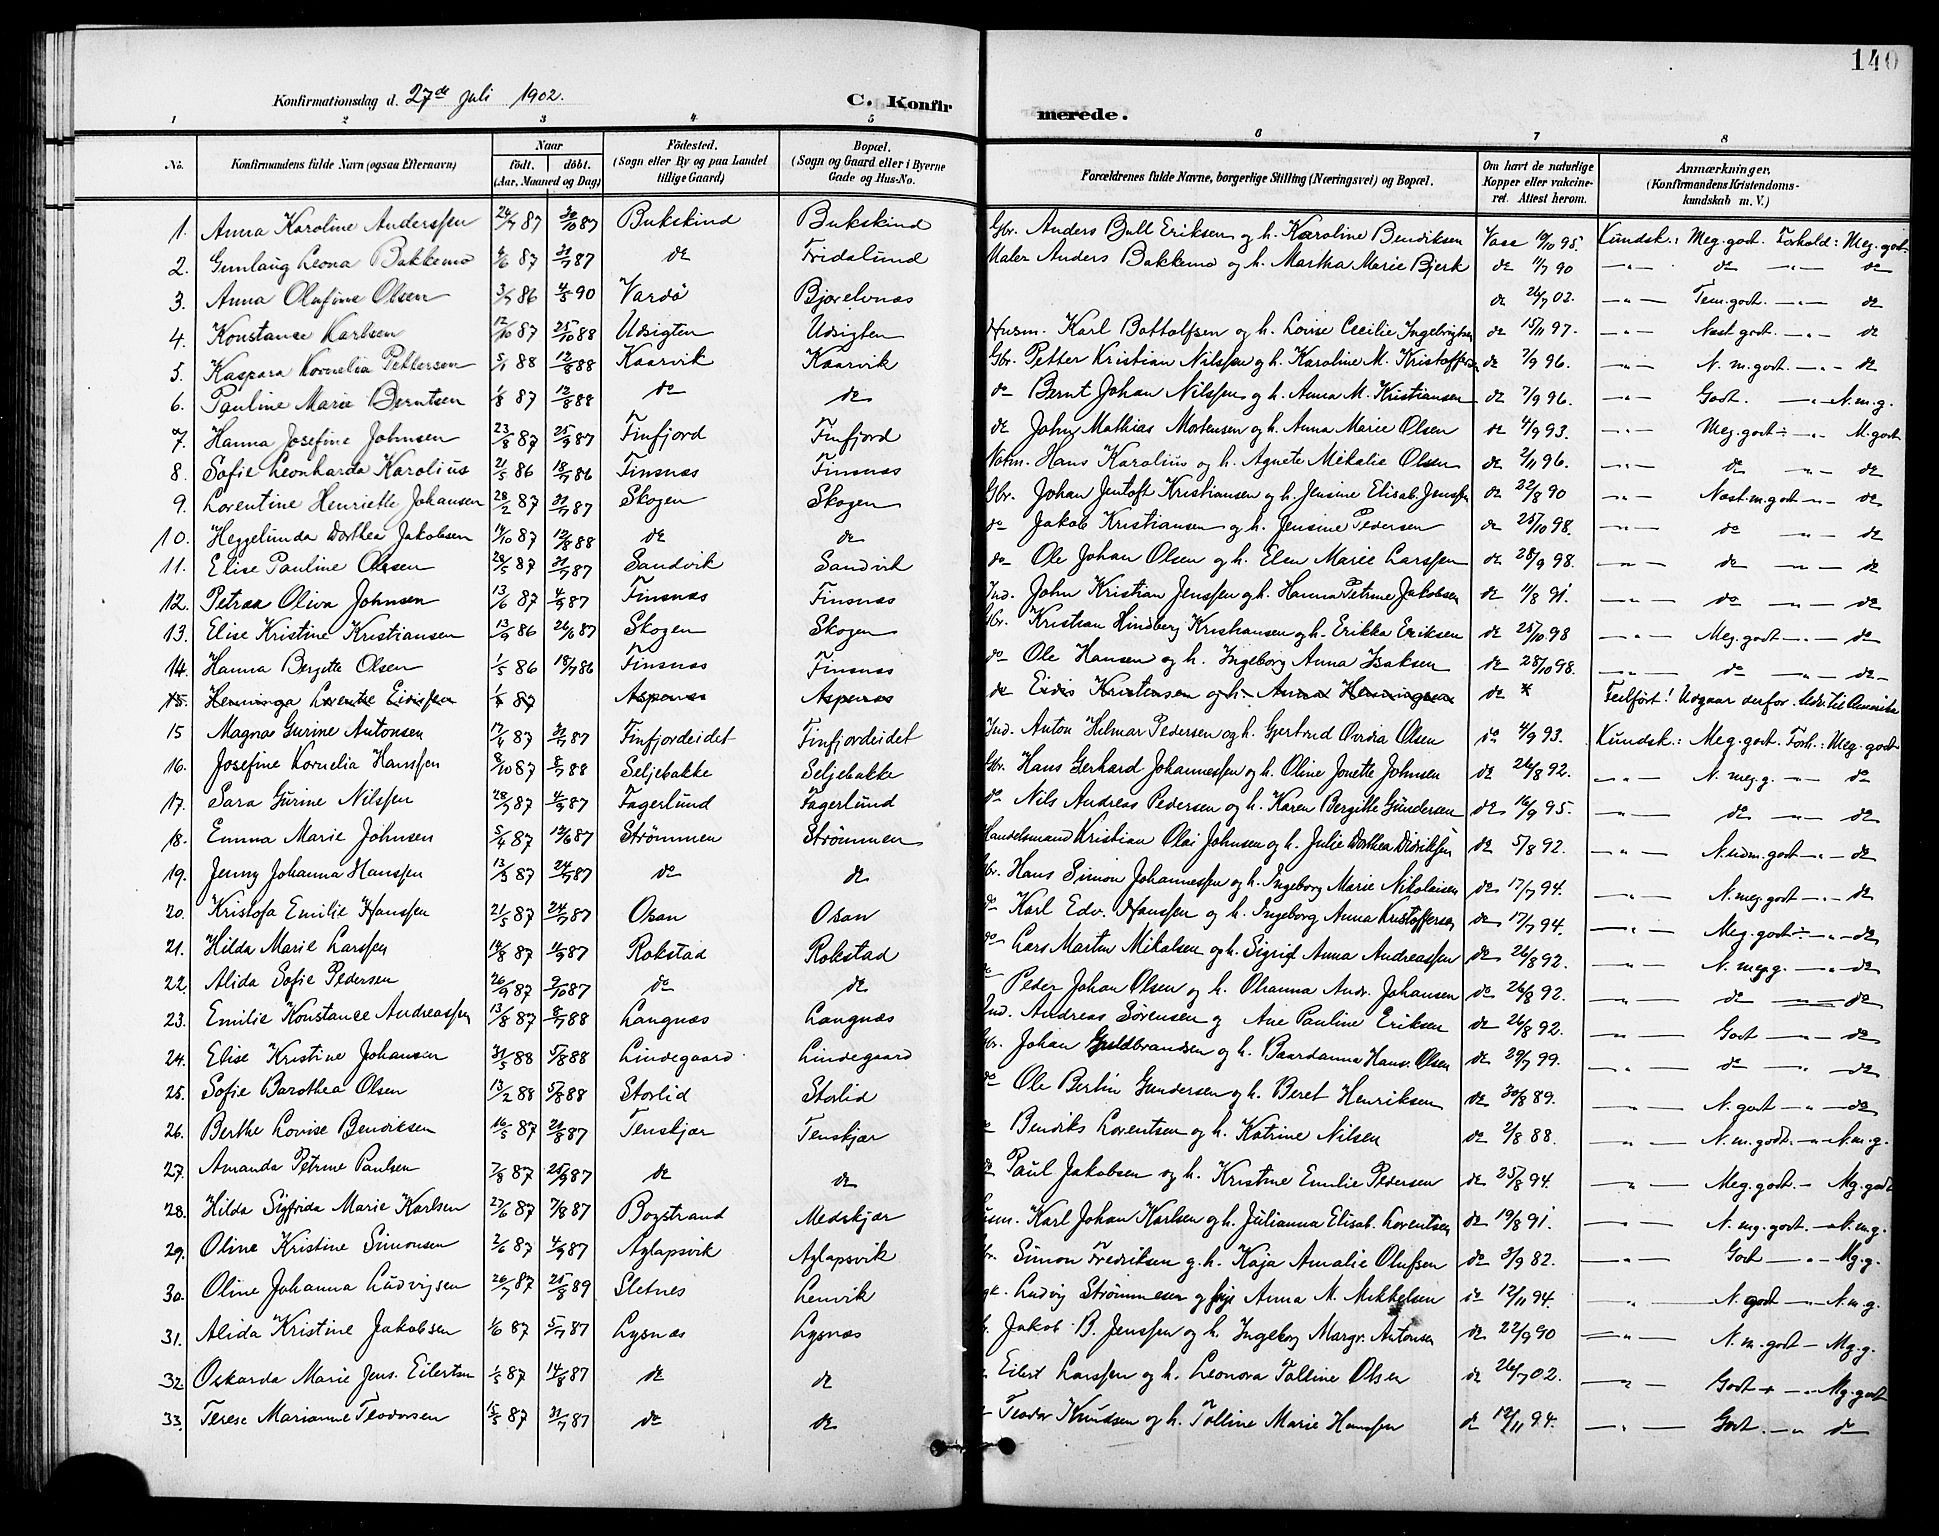 140
Konfirmationsdag d. 27de Juli 1902.
C. Konfirmerede.
1 2 3 4 5 6 7 8
No. Konfirmandens fulde Navn (ogsaa Efternavn) Naar födt. döbt. (Aar, Maaned og Dag) Födested. (Sogn eller By og paa Landet tillige Gaard) Bopæl. (Sogn og Gaard eller i Byerne Gade og Hus-No. Forældrenes fulde Navne, borgerlige Stilling (Næringsvei) og Bopæl. Om havt de naturlige Kopper eller vakcineret. Attest herom. Anmærkninger. (Konfirmandens Kristendomskundskab m. V.)
1. Anna Karoline Anderssen 24/7 87 30/10 87 Bukskind Bukskind Gbr. Anders Bull Eriksen og h. Karoline Bendiksen Vacc 10/10 95. Kundsk.: Meg. godt. Forhold: Meg. godt
2. Gunlaug Leona Bakkemo 6/6 87 31/7 87 do Fridalund Maler Anders Bakkemo og h. Martha Marie Bjerk do 11/7 90 —"— do —"— do
3. Anna Olufine Olsen 3/7 86 4/5 90 Vardö Bjorelvnes do 26/7 02. —"— Tem. godt. —"— do
4. Konstance Karlsen 12/10 87 25/10 88 Udsigten Udsigten Husm. Karl Bottolfsen og h. Lovise Cecilie Ingebrigtsen do 15/11 97. —"— Næst godt. —"— do
5. Kaspara Kornelia Pettersen 5/1 88 12/8 88 Kaarvik Kaarvik Gbr. Petter Kristian Nilssen og h. Karoline M. Kristoffersen do 7/9 96. —"— N. m. godt. —"— do
6. Pauline Marie Berntsen 1/8 87 12/8 88 do do do Bernt Johan Nilssen og h. Anna M. Kristiansen do 7/9 96. —"— Godt. —"— N. m. g.
7. Hanna Josefine Johnsen 23/8 87 25/9 87 Finfjord Finfjord do John Mathias Mortensen og h. Anna Marie Olsen do 4/9 93. —"— Meg. godt —"— M. godt
8. Sofie Leonharda Karolius 21/5 86 18/7 86 Finsnes Finsnes Notm. Hans Karolius og h. Agnete Mikalie Olsen do 2/11 96. —"— do —"— do
9. Lorentine Henriette Johansen 28/2 87 31/7 87 Skogen Skogen Gbr. Johan Jentoft Kristiansen og h. Jensine Elisab. Jenssen do 22/8 90 —"— Næst. m. godt —"— do
10. Heggelunda Dorthea Jakobsen 14/10 87 12/8 88 do do do Jakob Kristiansen og h. Jensine Pedersen do 25/10 98. —"— do —"— do
11. Elise Pauline Olsen 29/5 87 31/7 87 Sandvik Sandvik do Ole Johan Olsen og h. Elen Marie Larssen do 28/9 98. —"— do —"— do
12. Petrea Oliva Johnsen 13/6 87 4/9 87 Finsnes Finsnes Ind. John Kristian Jenssen og h. Hanna Petrine Jakobsen do 11/8 91. —"— do —"— do
13. Elise Kristine Kristiansen 13/9 86 26/6 87 Skogen Skogen Gbr. Kristian Hindberg Kristiansen og h. Erikka Eriksen do 25/10 98 —"— Meg. godt —"— do
14. Hanna Bergitte Olsen 1/5 86 18/7 86 Finsnes Finsnes do Ole Hansen og h. Ingeborg Anna Isaksen do 28/10 98. —"— do —"— do
15. Henninga Lorentze Eidissen 87 Aspenes Aspenes do Eidis Kristensen og h. Anna Henningsen do * Feilfört! Udgaar derfor. Udv. til Amerika
15 Magna Gurine Antonsen 17/4 87 31/7 87 Finfjordeidet Finfjordeidet Ind. Anton Hilmar Pedersen og h. Gjertrud Ovidia Olsen do 4/9 93. Kundsk.: Meg. godt. Forh.: Meg. godt
16. Josefine Kornelia Hanssen 8/10 87 8/7 88 Seljebakke Seljebakke Gbr. Hans Gerhard Johannessen og h. Oline Jonette Johnsen do 26/8 92. —"— N. meg. g. —"— do
17. Sara Gurine Nilssen 28/7 87 4/9 87 Fagerlund Fagerlund do Nils Andreas Pedersen og h. Karen Bergitte Gundersen do 16/9 95. —"— do —"— do
18. Emma Marie Johnsen 5/4 87 12/6 87 Strömmen Strömmen Handelsmand Kristian Olai Johnsen og h. Julie Dorthea Didriksen do 5/8 92. —"— N. udm. godt —"— do
19. Jenny Johanna Hanssen 13/3 87 24/7 87 do do Gbr. Hans Simon Johannessen og h. Ingeborg Marie Nikolaisen do 17/7 94. —"— N. meg. godt —"— do
20. Kristofa Emilie Hanssen 21/5 87 24/7 87 Osan Osan do Karl Edv. Hanssen og h. Ingeborg Anna Kristoffersen do 17/7 94. —"— Meg. godt —"— do
21. Hilda Marie Larssen 14/8 87 4/9 87 Rokstad Rokstad do Lars Martin Mikalsen og h. Sigrid Anna Andreassen do 26/8 92. —"— N. meg. g. —"— do
22. Alida Sofie Pedersen 26/9 87 9/10 87 do do do Peder Johan Olsen og h. Ohanna Andr. Johansen do 26/8 92. —"— do —"— do
23. Emilie Konstance Andreassen 13/8 87 8/7 88 Langnæs Langnæs Ind. Andreas Sörensen og Ane Pauline Eriksen do 26/8 92. —"— Godt —"— do
24. Elise Kristine Johansen 31/5 88 5/8 88 Lindegaard Lindegaard Gbr. Johan Guldbrandsen og h. Baardanna Hans. Olsen do 29/7 99. —"— do —"— do
25. Sofie Barothea Olsen 13/2 88 5/8 88 Storlid Storlid do Ole Bertin Gundersen og h. Beret Henriksen do 30/8 89. —"— N. godt —"— do
26. Berthe Lovise Bendiksen 16/5 87 21/8 87 Tenskjær Tenskjær do Bendiks Lorentsen og h. Katrine Nilsen do 2/8 88. —"— N. m. godt. —"— N. m. g.
27. Amanda Petrine Paulsen 7/8 87 25/9 87 do do do Paul Jakobsen og h. Kristine Emilie Pedersen do 25/8 94. —"— Meg. godt. — Mg. godt
28. Hilda Sigfrida Marie Karlsen 27/6 87 7/8 87 Bogstrand Medskjær Husm. Karl Johan Karlsen og h. Julianna Elisab. Lorentsen do 19/8 91. —"— N. mg. godt. —"— N. m. g.
29. Oline Kristine Simonsen 2/6 87 4/9 87 Aglapsvik Aglapsvik Gbr. Simon Fredriksen og h. Kaja Amalie Olufsen do 3/9 82. —"— Godt —"— Mg. g.
30. Oline Johanna Ludvigsen 26/7 87 25/8 89 Sletnes Lenvik Ludvig Strömmesen og Anna M. Mikkelsen do 12/11 94. —"— N. godt —"— N. m. g.
31. Alida Kristine Jakobsen 1/6 87 5/7 87 Lysnæs Lysnæs Jakob B. Jenssen og h. Ingeborg Margr. Antonsen do 22/9 90 —"— N. m. godt — Mg. g.
32 Oskarda Marie Jens. Eilertsen 1/5 87 14/8 87 do do Eilert Larssen og h. Leonora Tolline Olsen do 26/7 02. —"— Godt —"— Mg. godt
33. Terese Marianne Teodorsen 15/5 87 31/7 87 do do Teodor Knudsen og h. Tolline Marie Hanssen do 12/11 94. —"— Godt. —"— do